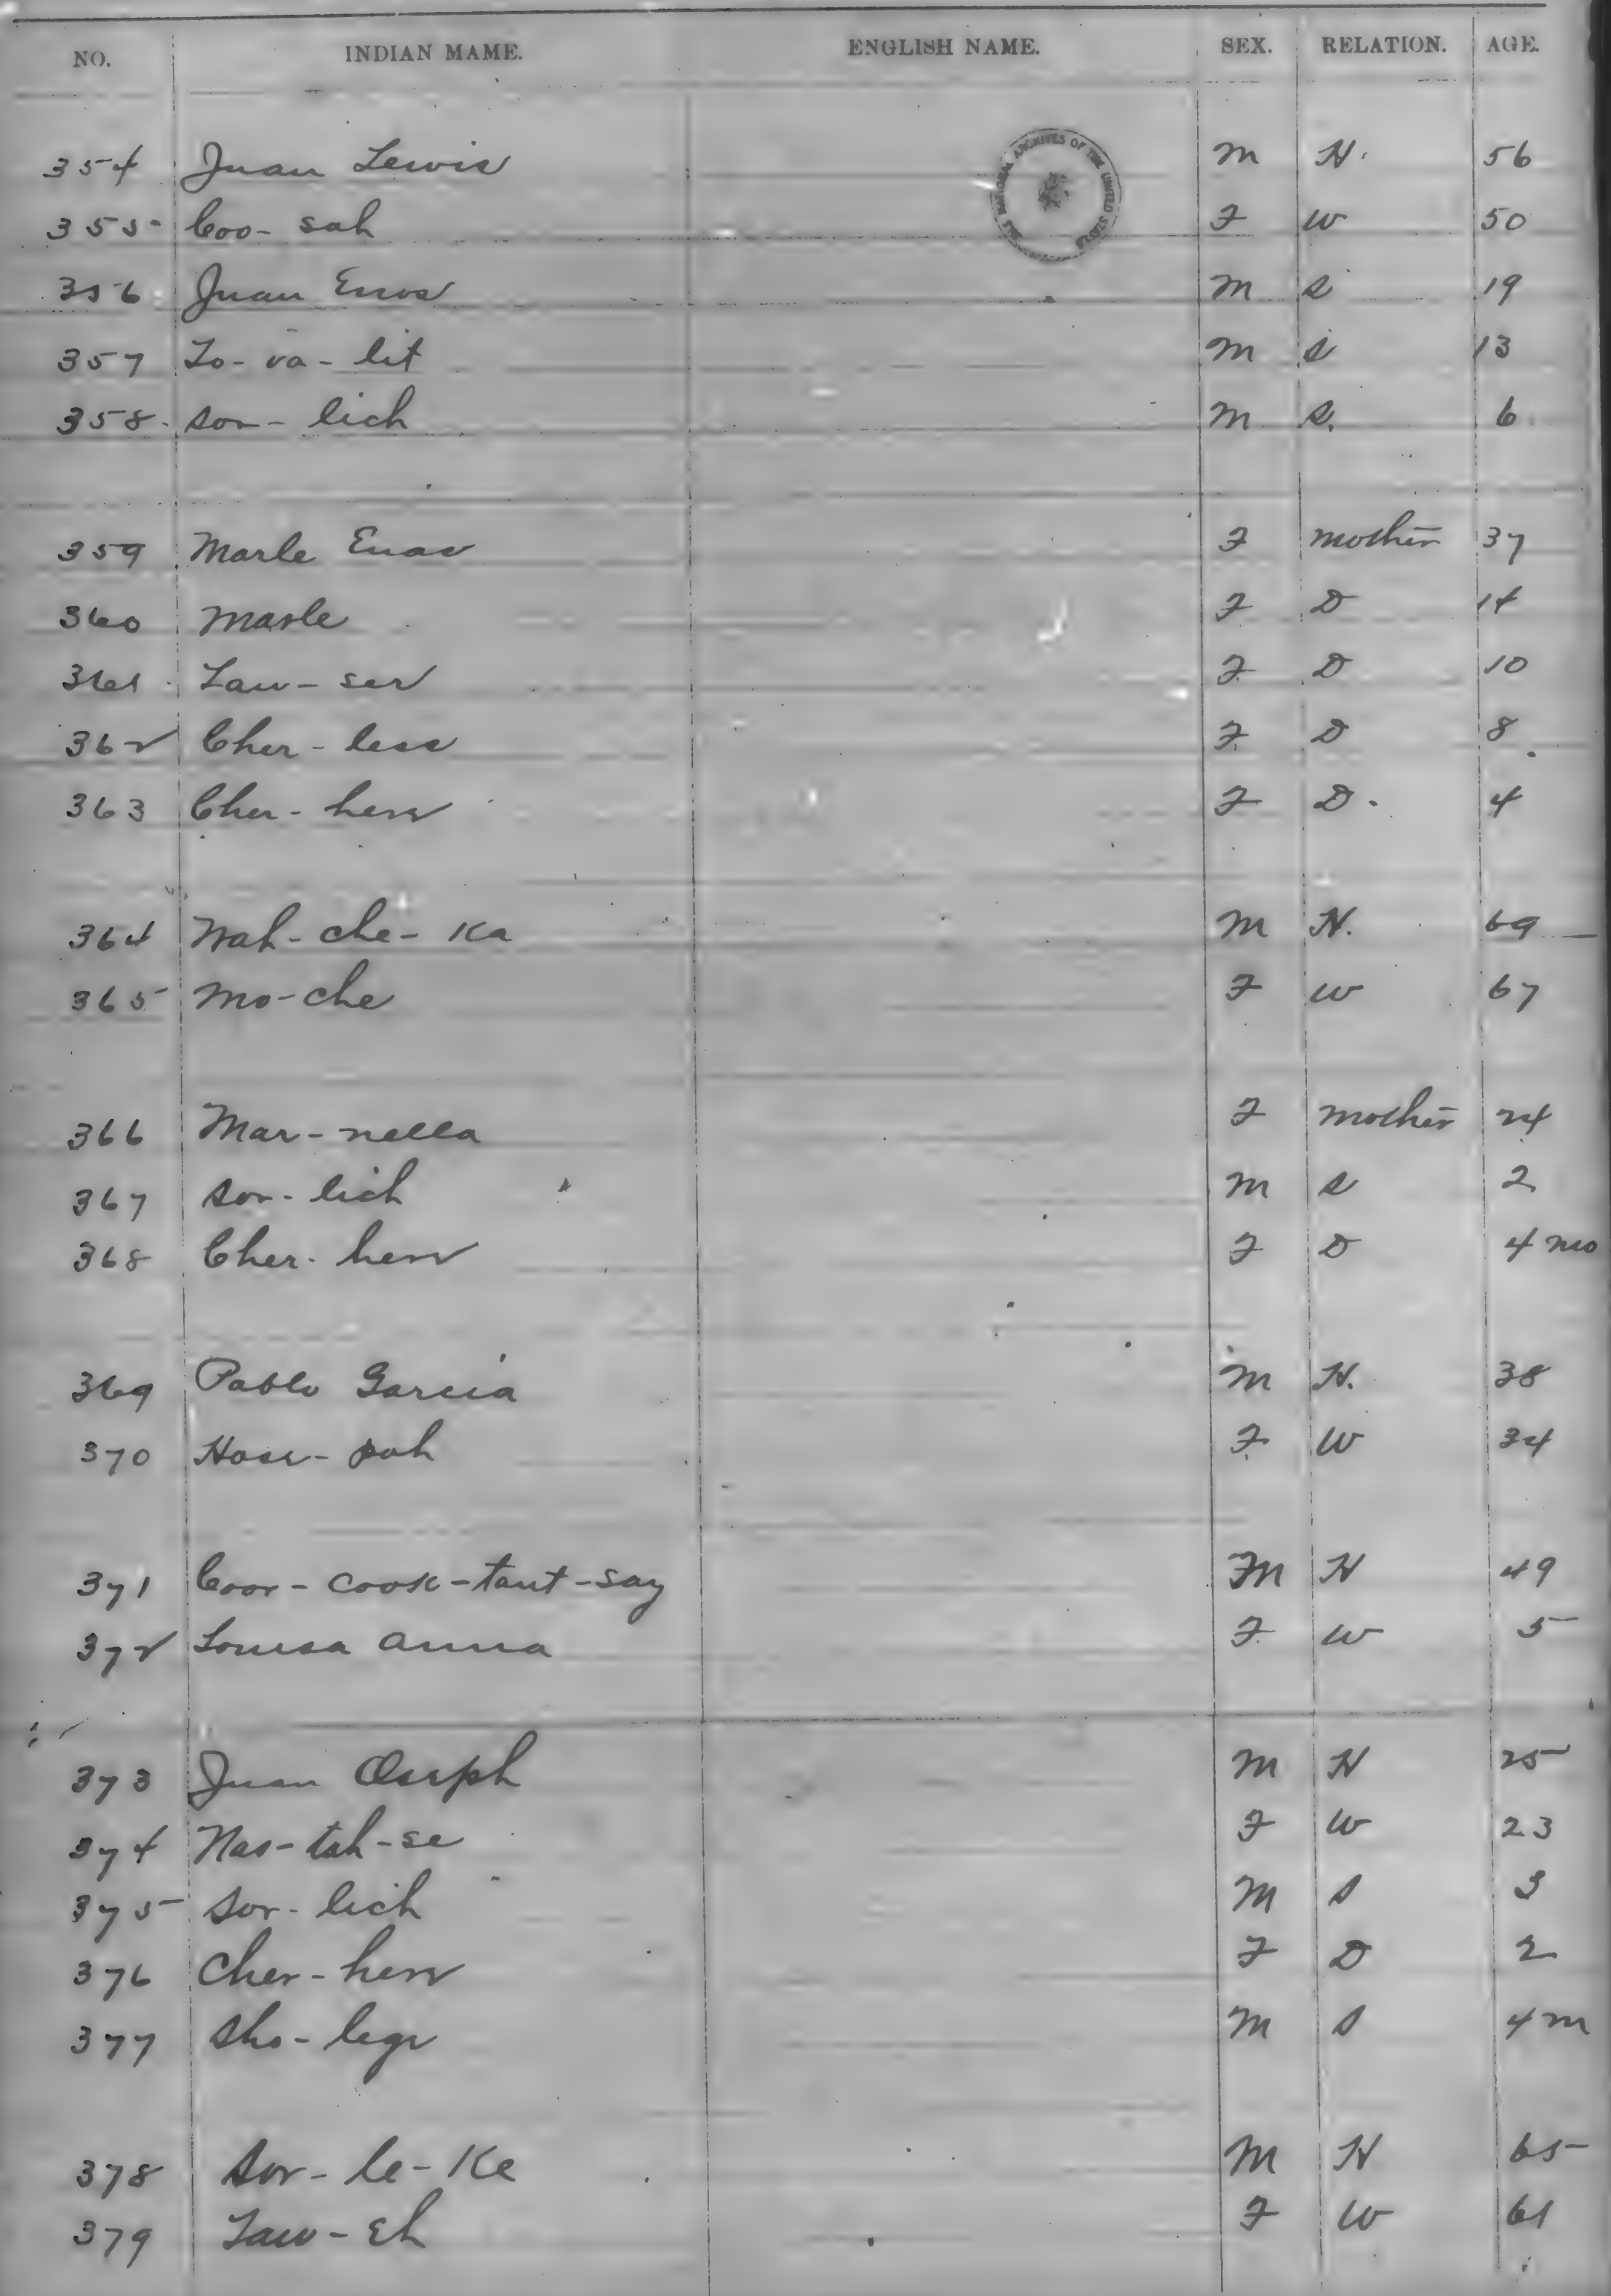 NO. INDIAN MAME. ENGLISH NAME. SEX. RELATION. AGE.
ARCHIVES OF THE UNITED STATES
354 Juan Lewis M H. 56
355 Coo-sah F W 50
356 Juan Enos M S 19
357 Lo-va-lit M S 13
358 Sor-lich M S. 6
359 Marle Enas F Mother 37
360 Marle F D 14
361 Law-ser F D 10
362 Cher-less F D 8
363 Cher-hew F D. 4
364 Wah-che-Ka M H. 69
365 Mo-che F W 67
366 Mar-nella F Mother 24
367 Sor-lich M S 2
368 Cher-hew F D 4 mo
369 Pablo Garcia M H. 38
370 Hose-pah F W 34
371 Coor-cook-taut-say M H 49
372 Louisa Anna F W 5
373 Juan Oseph M H 25
374 Nas-tah-se F W 23
375 Sor-lich M S 3
376 Cher-hew F D 2
377 Sho-legr M S 4 m
378 Sor-le-Ke M H 65
379 Law-Eh F W 61